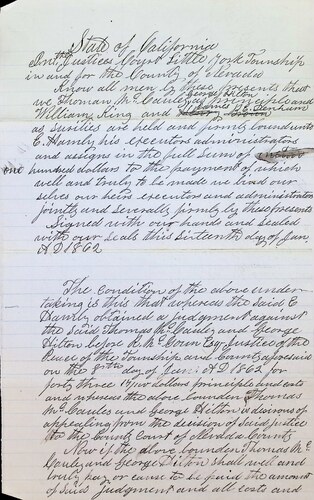 State of California
In the Justices Court Little York Township
in and for the County of Nevada
Know all men by these presents that
we Thomas McCauley George Hilton as Principle and
William King and James D. Denham
as sureties are held and firmly bound unto
E. Hamly his executors administrators
and assigns in the full Sum of
one hundred dollars to the payment of which
well and truly to be made we bind our
selves our heirs executors and administrators
jointly and Severally firmly by these presents
Signed with our hands and Sealed
with our Seals this Sixteenth day of Jan
AD 1862
The condition of the above under
taking is this that whereas the Said E
Hamly obtained a judgment against
the Said Thomas McCauley and George
Hilton before Esq Justice of the
Peace of the Township and County aforesaid
on the 8th day of Jan: AD 1862 for
forty three dollars principle and costs
and whereas the above bounden Thomas
McCauley and George Hilton is desirous of
appealing from the decision of Said justice
to the County Court of Nevada County
Now if the above bounden Thomas Mc
Cauly and George Hilton Shall well and
truly pay or cause to be paid the amount
of Said Judgment and all cost and